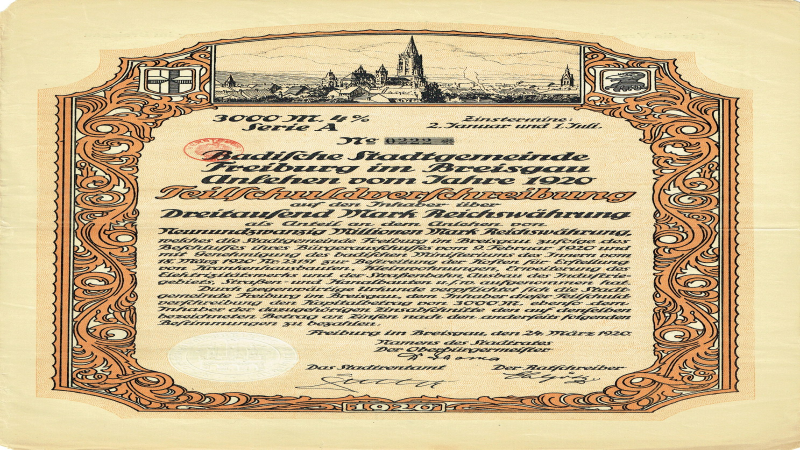 3000 M. 4%
Serie A
Zinstermine:
2. Januar und 1. Juli.
No 0222 *
Badische Stadtgemeinde
Freiburg im Breisgau
Anlehen vom Jahre 1920
Teilschuldverschreibung
auf den Inhaber über
Dreitausend Mark Reichswährung
als Anteil an dem Anlehen von
Neunundzwanzig Millionen Mark Reichswährung,
welches die Stadtgemeinde Freiburg im Breisgau zufolge des
Beschlusses ihres Bürgerausschusses vom 9. Februar 1920 und
mit Genehmigung des badischen Ministeriums des Innern vom
März 1920 zur Bestreitung der Kosten für Erstellung
von Neuwohnungen, Erweiterung des
Elektrizitätswerks und der Straßenbahn, Ausbau des Industriege-
Straßen und Kanalbauten u.s.w. aufgenommen hat.
Durch gegenwärtige Urkunde verpflichtet sich die Stadt-
gemeinde Freiburg i. Breisgau, dem Inhaber dieser Teilschuld-
verschreibung den Kapitalbetrag von 3000 M. sowie dem
Inhaber der dazugehörigen Zinsabschnitte den auf denselben
bezeichneten Betrag an Zinsen nach den anderseits folgenden
Bestimmungen zu bezahlen.
Freiburg im Breisgau, den 24. März 1920.
Namens des Stadtrates
Der Oberbürgermeister
Das Stadtrentamt
Der Ratschreiber
1920